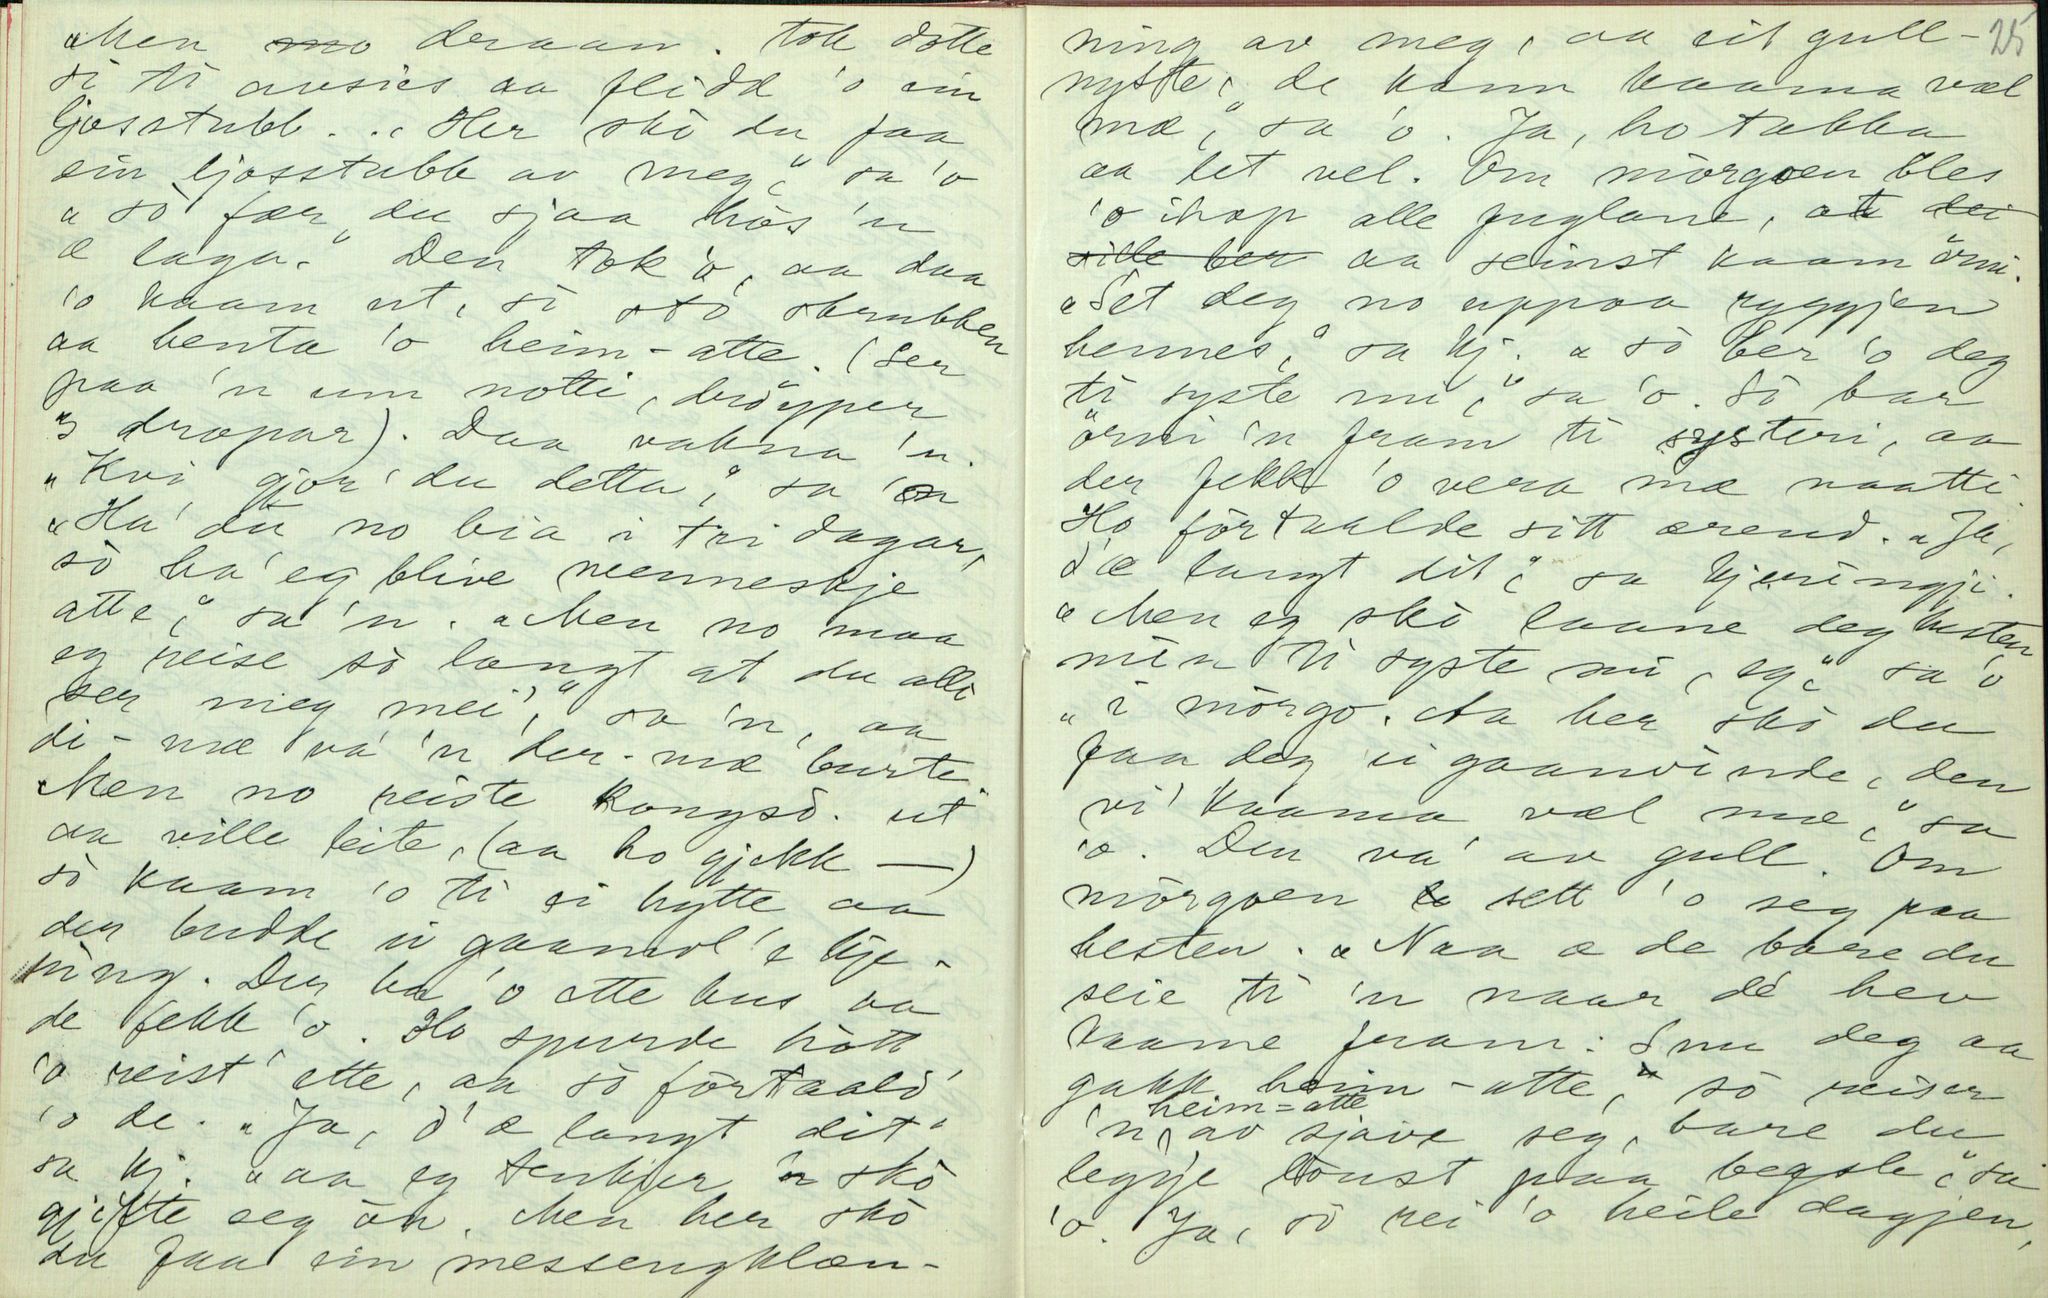 „Men deraan. tok dotte
si ti avsies aa flidd 'o ein
ljosstubb. „Her skò du faa
ein ljosstubb av meg," sa 'o
„sò fær du sjaa hòs 'n
æ laga." Den tok 'o, aa daa
'o kaam ut, sò stó skrubben
aa henta 'o heim-atte. (Ser
paa 'n um notti, drøyper
3 dropar). Daa vakna 'n.
„Kvi gjor' du detta," sa 'n
„Ha' du no bia i tri dagar,
sò ha' eg blive menneskje
atte," sa 'n. „Men no maa
eg reise sò langt at du alli
ser meg mei'," sa 'n, aa
di-mæ va' 'n der-mæ burte.
Men no reiste kongsd. ut
aa ville leite, (aa ho gjekk —)
sò kaam 'o ti ei hytte aa
der budde ei gaamol 'e kje-
ring. Der ba 'o ette hus aa
de fekk 'o. Ho spurde hòtt
'o reist' ette, aa sò førtaald'
'o de. „Ja, d'æ langt dit"
sa kj. „aa eg tenkjer 'n skò
gjifte seg òn. Men her skò
du faa ein messengklæn-
25
ning av meg, aa eit gull-
nyste, de kann kaama væl
mæ," sa 'o. Ja, ho takka
aa let vel. Om mòrgoen bles
'o ihop alle fuglane, at dei
sille ber aa seinst kaam ørni.
„Set deg no uppaa ryggjen
hennes," sa kj. „sò ber 'o deg
ti syste mi," sa 'o. Sò bar
ørni 'n fram ti systeri, aa
der fekk 'o vera mæ naatti.
Ho førtaalde sitt ærend. „Ja,
d'æ langt dit," sa kjeringji.
„Men eg skò laane deg hesten
min ti syste mi, eg," sa 'o
„i mòrgo. Aa her skò du
faa deg ei gaanvinde, den
vi' kaama væl mæ," sa
'o. Den va' av gull. Om
mòrgoen sett 'o seg paa
hesten. „Naa æ de bare du
seie ti 'n naar dé hev
kaame fram: Snu deg aa
gakk heim-atte," sò reiser
heim-atte
'n, av sjave seg, bare du
legje laust paa begsle," sa
'o. Ja, sò rei 'o heile dagjen,